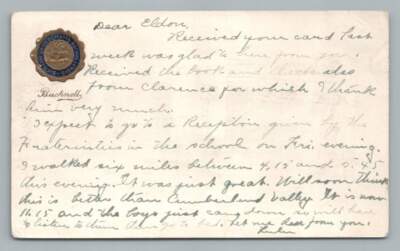 Dear Eldon,
Received your card last
week was glad to hear from you.
Received the book and also
from Clarence for which I thank
him very much.
Bucknell
I expect to go to a Reception given by the
Fraternities in the school on Fri. evening.
I walked six miles between 4,15 and 5,45
this evening. It was just great. Will soon think
this is better than Cumberland Valley. It is now
10.15 and the boys just came down, so will have
to listen to them then go to bed. Let me hear from you.